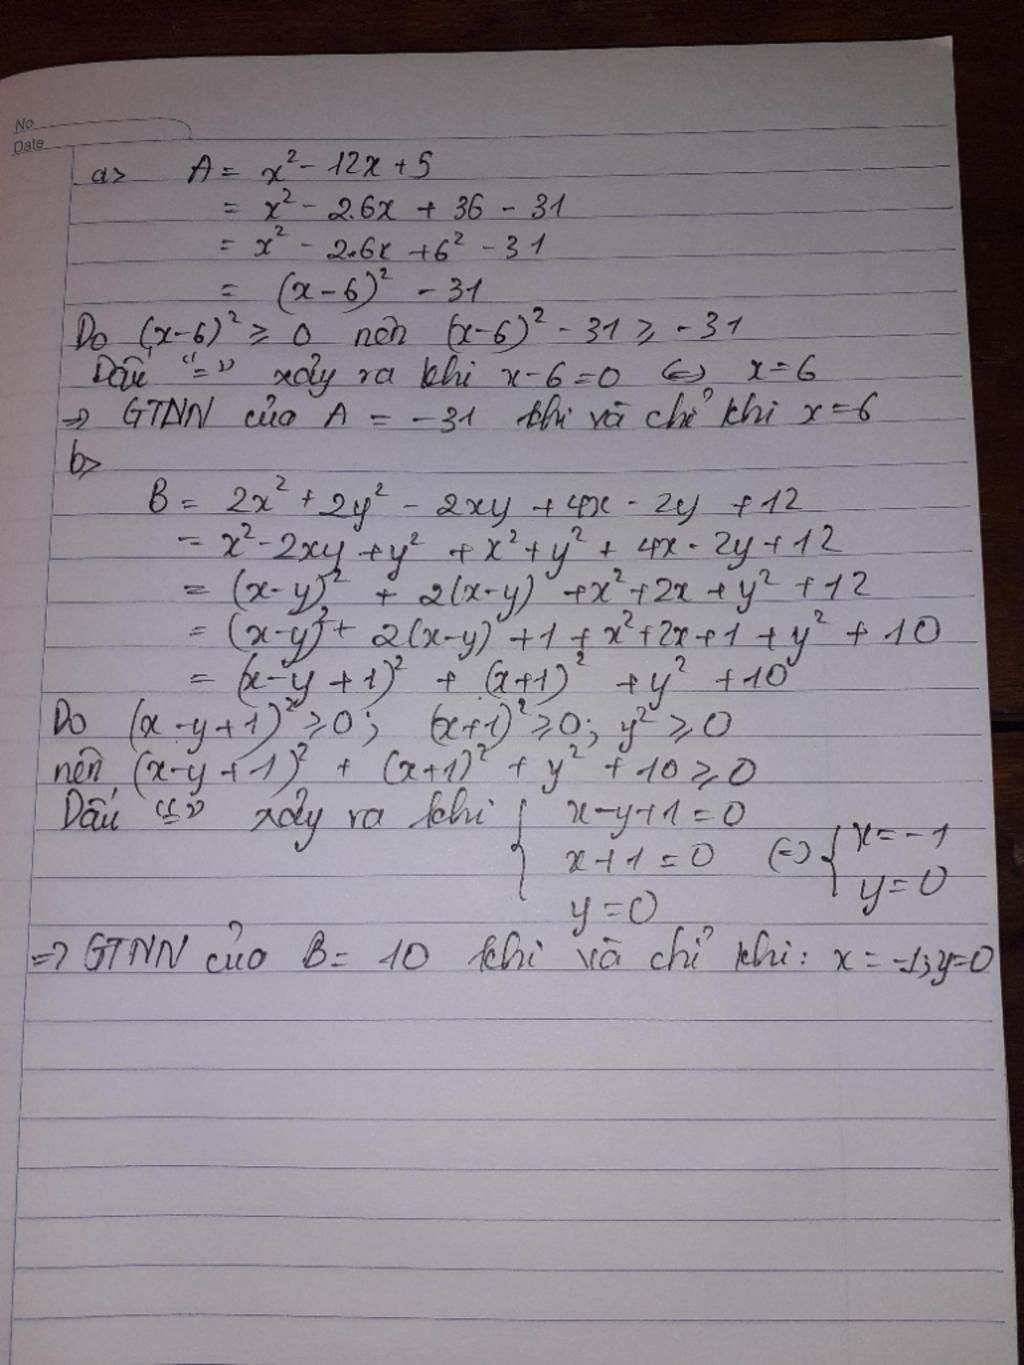 No
Date
a> A = x² - 12x + 5
= x² - 2.6x + 36 - 31
= x² - 2.6x + 6² - 31
= (x-6)² - 31
Do (x-6)² ≥ 0 nên (x-6)² - 31 ≥ -31
Dấu "=" xảy ra khi x-6=0 ⇔ x=6
⇒ GTNN của A = -31 khi và chỉ khi x=6
b>
B = 2x² + 2y² - 2xy + 4x - 2y + 12
= x² - 2xy + y² + x² + y² + 4x - 2y + 12
= (x-y)² + 2(x-y) + x² + 2x + y² + 12
= (x-y)² + 2(x-y) + 1 + x² + 2x + 1 + y² + 10
= (x-y+1)² + (x+1)² + y² + 10
Do (x-y+1)² ≥ 0; (x+1)² ≥ 0; y² ≥ 0
nên (x-y+1)² + (x+1)² + y² + 10 ≥ 0
Dấu "=" xảy ra khi { x-y+1=0
x+1=0 ⇔ { x=-1
y=0 y=0
⇒ GTNN của B = 10 khi và chỉ khi: x = -1; y=0